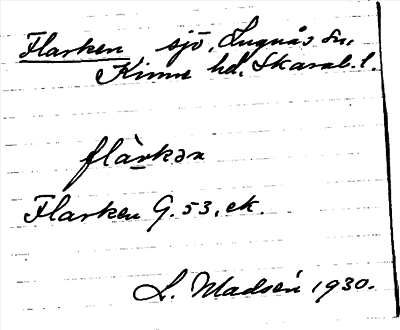 Flarken sjö, Lugnås sn,
Kinne hd. Skarab. l.
flàrkən
Flarken G. 53, ek.
L. Madsén 1930.